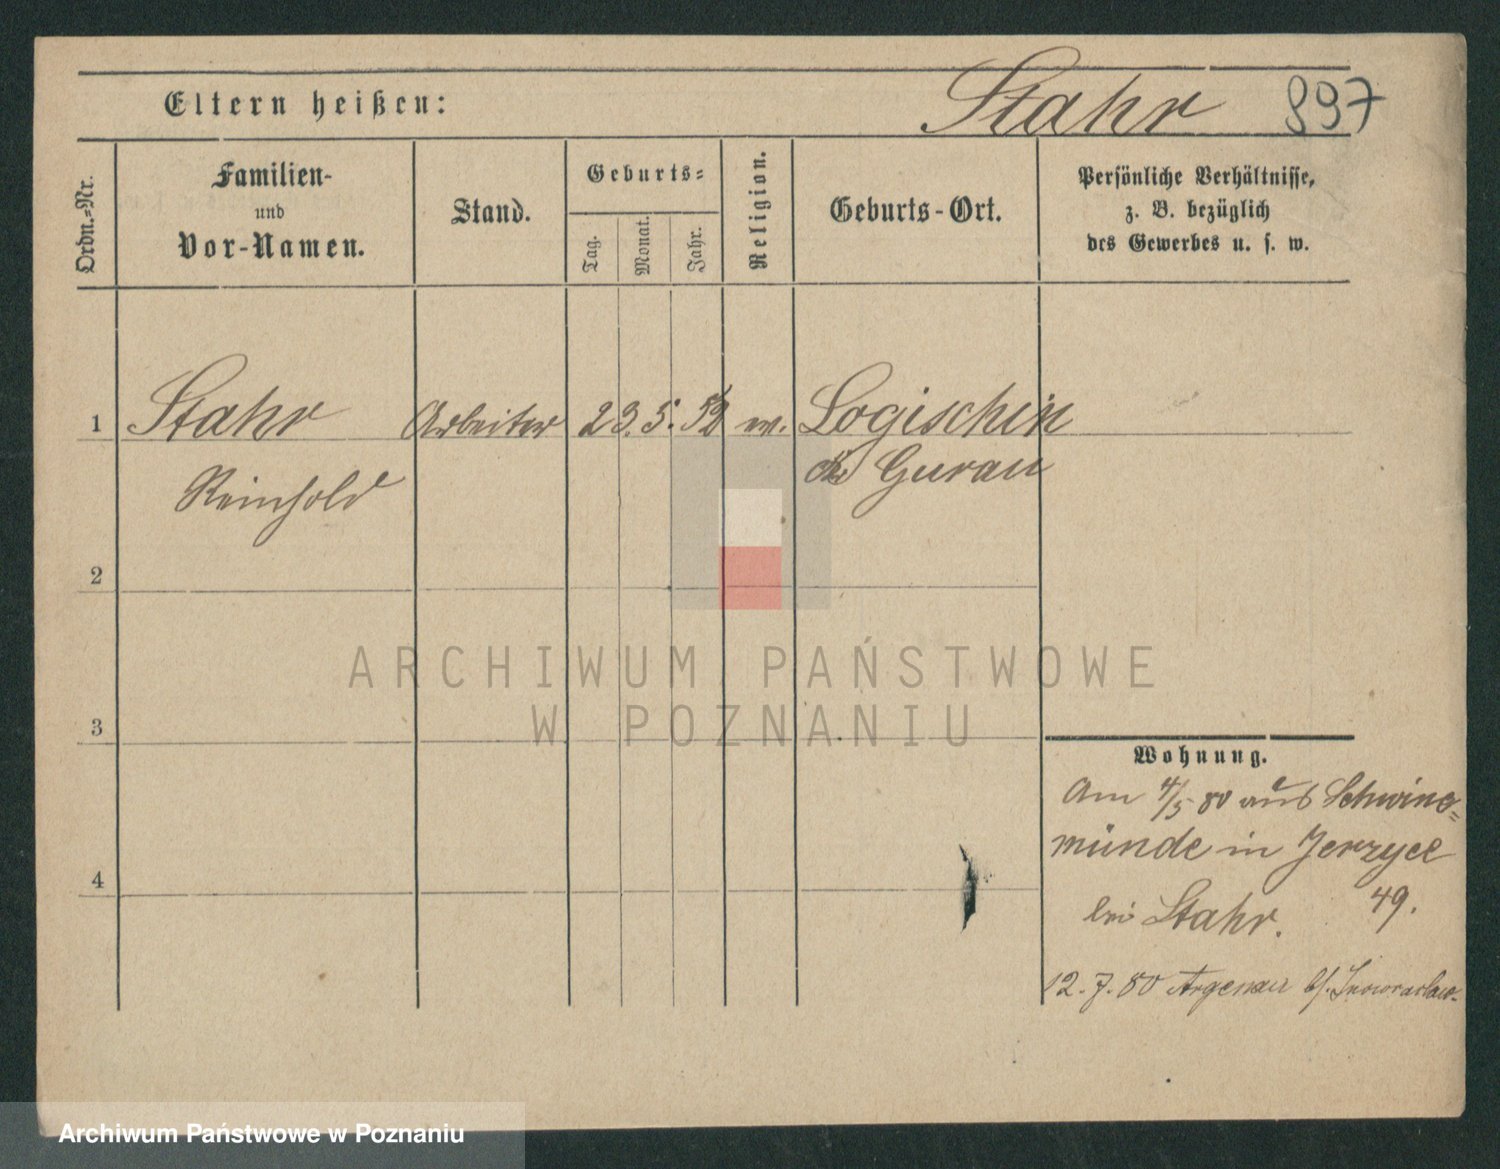 Eltern heißen: Stahr 897
Ordn.=Nr.
Familien-
und
Vor-Namen.
Stand.
Geburts=
Tag.
Monat.
Jahr.
Religion.
Geburts-Ort.
Persönliche Verhältnisse,
z. B. bezüglich
des Gewerbes u. s. w.
1 Stahr Arbeiter 23. 5. 52 ev. Logischen
Reinhold Gurau
2
3
4
Wohnung.
Am 4/5 80 aus Schwine=
münde in Jerzyce
bei Stahr. 49.
12. 7. 80 Argenau b/. Inowraclaw.
ARCHIWUM PAŃSTWOWE
W POZNANIU
Archiwum Państwowe w Poznaniu